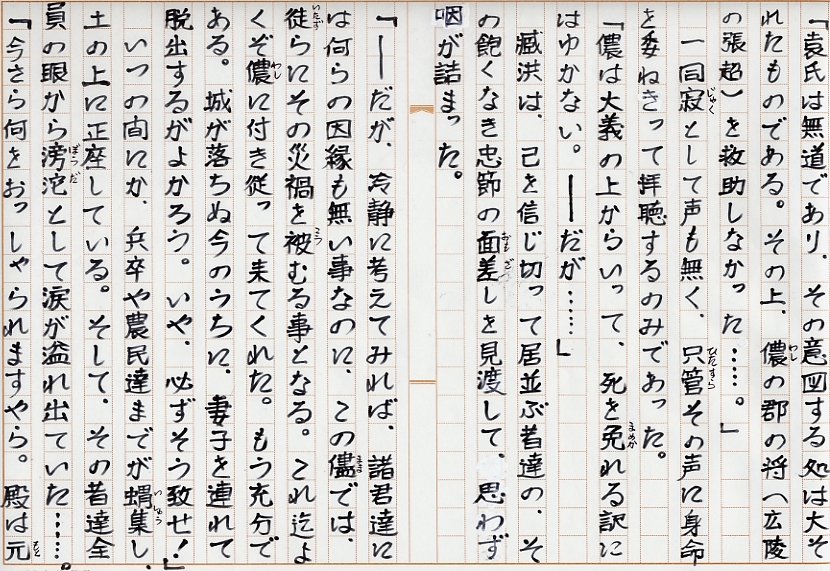 「袁氏は無道であり、その意図する処は大そ
れたものである。その上、儂の郡の将へ広陵
の張超）を救助しなかった……。」
一同寂として声も無く、只管その声に身命
を委ねきって拝聴するのみであった。
「儂は大義の上からいって、死を免れる訳に
はゆかない。――だが……」
臧洪は、己を信じ切って居並ぶ者達の、そ
の飽くなき忠節の面差しを見渡して、思わず
咽が詰まった。
「――だが、冷静に考えてみれば、諸君達に
は何らの因縁も無い事なのに、この儘では、
徒らにその災禍を被むる事となる。これ迄よ
くぞ儂に付き従って来てくれた。もう充分で
ある。城が落ちぬ今のうちに、妻子を連れて
脱出するがよかろう。いや、必ずそう致せ！」
いつの間にか、兵卒や農民達までが蝟集し、
土の上に正座している。そして、その者達全
員の眼から滂沱として涙が溢れ出ていた……。
「今さら何をおっしゃられますやら。殿は元